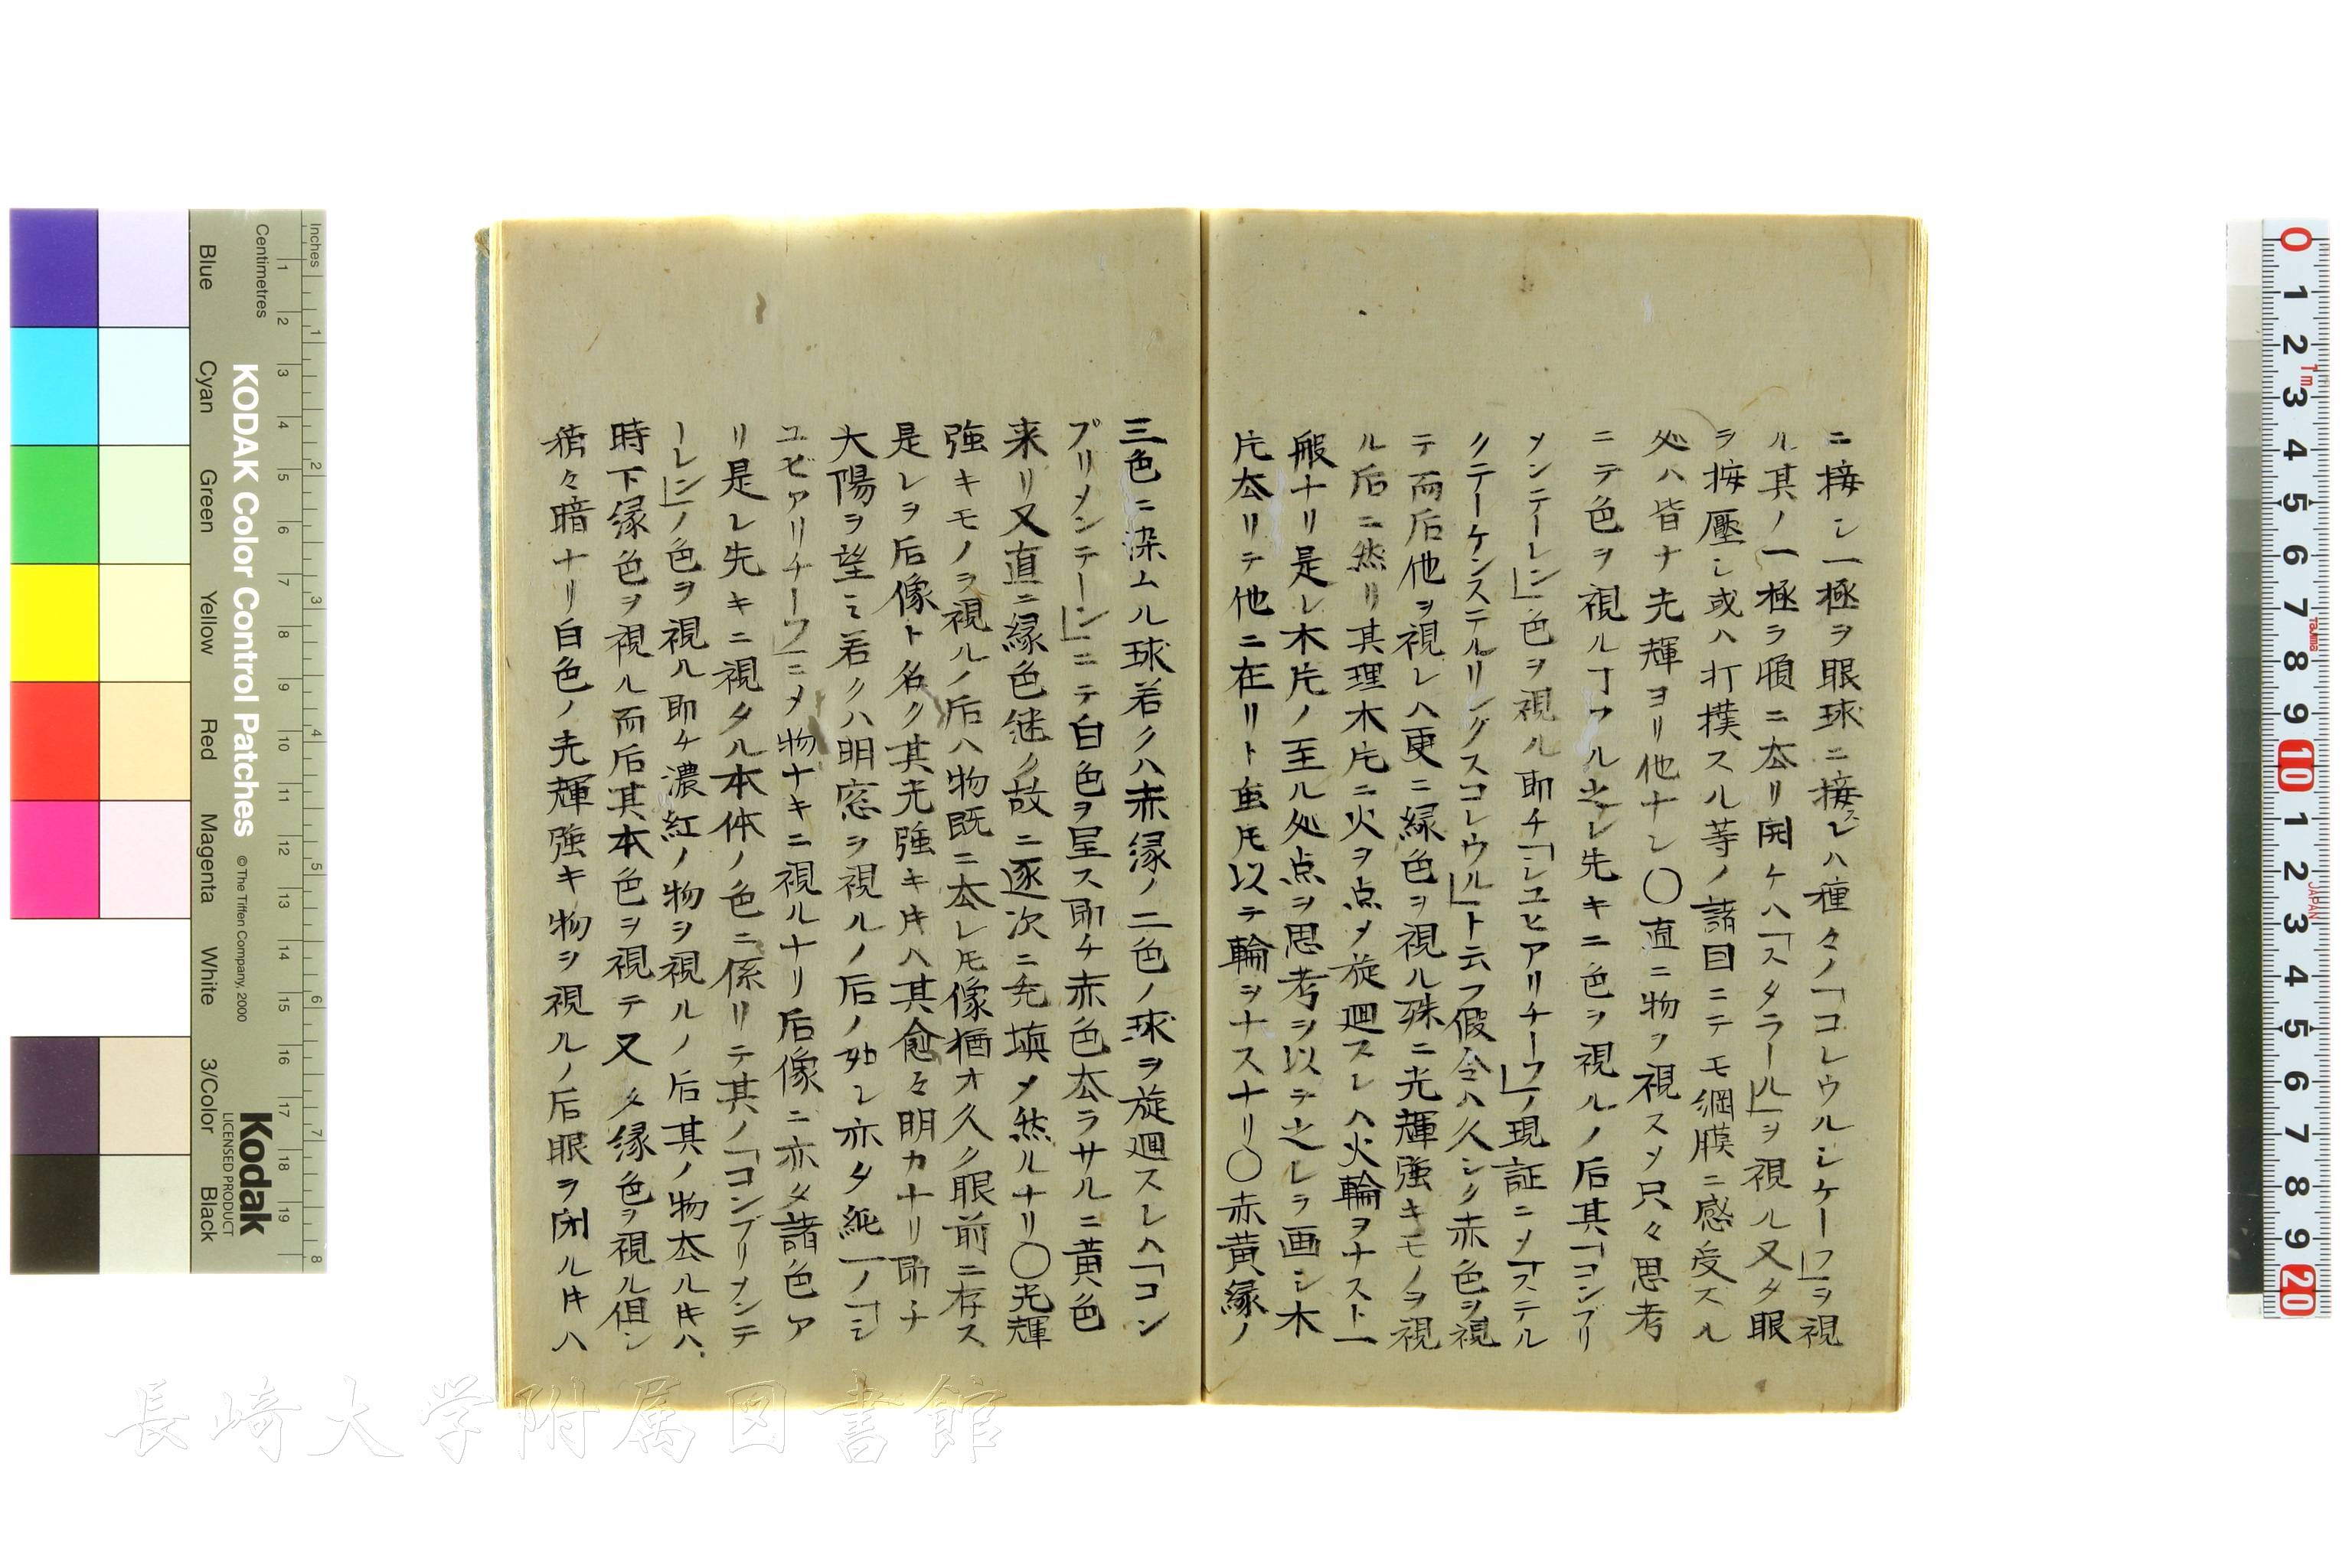 ニ接シ一極ヲ眼球ニ接スレハ種々ノ「コレウルシケーフ」ヲ視
ル其ノ一極ヲ頓ニ厺リ開ケハ「スタラール」ヲ視ル又タ眼
ヲ按壓シ或ハ打撲スル等ノ諸因ニテモ網膜ニ感受スル
処ハ皆ナ光輝ヨリ他ナシ〇直ニ物ヲ視スソ只々思考
ニテ色ヲ視ルヿアル之レ先キニ色ヲ視ルノ后其「コンブリ
メンテーレン」色ヲ視ル即チ「シユヒアリチーウ」ノ現証ニメ「ステル
クテーケンステルリングスコレウル」ト云フ假令ハ久シク赤色ヲ視
テ而后他ヲ視レハ更ニ緑色ヲ視ル殊ニ光輝強キモノヲ視
ル后ニ然リ其理木片ニ火ヲ点メ旋廻スレハ火輪ヲナスト一
般ナリ是レ木片ノ至ル処点ヲ思考ヲ以テ之レヲ画シ木
片厺リテ他ニ在リト虽𪜈以テ輪ヲナスナリ〇赤黄緑ノ
三色ニ染ムル球若クハ赤緑ノ二色ノ球ヲ旋廻スレハ「コン
プリメンテーン」ニテ白色ヲ呈ス即チ赤色厺ラサルニ黄色
来リ又直ニ緑色継ク故ニ逐次ニ充填メ然ルナリ〇光輝
強キモノヲ視ルノ后ハ物既ニ厺レ𪜈像猶オ久ク眼前ニ存ス
是レヲ后像ト名ク其光強キ𪜈ハ其愈々明カナリ即チ
大陽ヲ望ミ若クハ明窓ヲ視ルノ后ノ如シ亦タ純一ノ「シ
ユビアリチーウ」ニメ物ナキニ視ルナリ后像ニ亦タ諸色ア
リ是レ先キニ視タル本体ノ色ニ係リテ其ノ「コンブリメンテ
ーレン」ノ色ヲ視ル即チ濃紅ノ物ヲ視ルノ后其ノ物厺ル𪜈ハ
時下緑色ヲ視ル而后其本色ヲ視テ又タ緑色ヲ視ル但シ
稍々暗ナリ白色ノ光輝強キ物ヲ視ルノ后眼ヲ閉ル𪜈ハ
長崎大学附属図書館
Inches
Centimetres
KODAK Color Control Patches
© The Tiffen Company, 2000
Kodak
LICENSED PRODUCT
Blue
Cyan
Green
Yellow
Red
Magenta
White
3/Color
Black
0 1 2 3 4 5 6 7 8 9 10 1 2 3 4 5 6 7 8 9 20
1m
TAJIMA
JAPAN